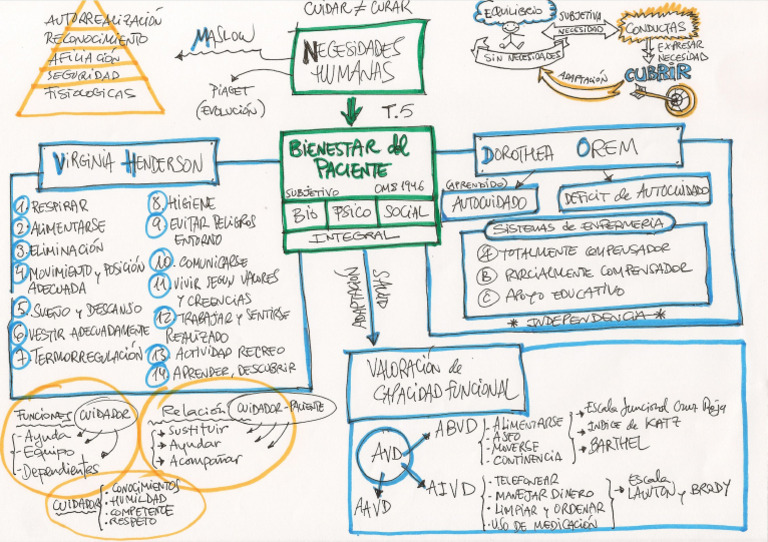 CUIDAR ≠ CURAR
AUTORREALIZACIÓN
RECONOCIMIENTO
AFILIACIÓN
SEGURIDAD
FISIOLOGICAS
MASLOW
PIAGET
(EVOLUCIÓN)
NECESIDADES
HUMANAS
T.5
EQUILIBRIO
SIN NECESIDADES
SUBJETIVA
NECESIDAD
CONDUCTAS
EXPRESAR
NECESIDAD
CUBRIR
ADAPTACIÓN
VIRGINIA HENDERSON
1 RESPIRAR
2 ALIMENTARSE
3 ELIMINACIÓN
4 MOVIMIENTO y POSICIÓN
ADECUADA
5 SUEÑO y DESCANSO
6 VESTIR ADECUADAMENTE
7 TERMORREGULACIÓN
8 HIGIENE
9 EVITAR PELIGROS
ENTORNO
10 COMUNICARSE
11 VIVIR SEGUN VALORES
Y CREENCIAS
12 TRABAJAR y SENTIRSE
REALIZADO
13 ACTIVIDAD RECREO
14 APRENDER, DESCUBRIR
BIENESTAR del
PACIENTE
SUBJETIVO OMS 1946
BIO PSICO SOCIAL
INTEGRAL
ADAPTACIÓN
SALUD
DOROTHEA OREM
(APRENDIDO)
AUTOCUIDADO
DÉFICIT de AUTOCUIDADO
SISTEMAS de ENFERMERIA
A TOTALMENTE COMPENSADOR
B PARCIALMENTE COMPENSADOR
C APOYO EDUCATIVO
* INDEPENDENCIA *
VALORACIÓN de
CAPACIDAD FUNCIONAL
AVD
ABVD
- ALIMENTARSE
- ASEO
- MOVERSE
- CONTINENCIA
Escala funcional Cruz Roja
INDICE de KATZ
BARTHEL
AIVD
- TELEFONEAR
- MANEJAR DINERO
- LIMPIAR y ORDENAR
- USO DE MEDICACIÓN
Escala
LAWTON y BRODY
AAVD
FUNCIONES CUIDADOR
- Ayuda
- Equipo
- Dependientes
Relación CUIDADOR-PACIENTE
Sustituir
Ayudar
Acompañar
CUIDADOR
- CONOCIMIENTOS
- HUMILDAD
- COMPETENTE
- RESPETO